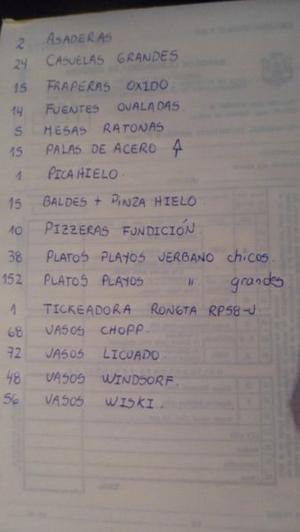 2 ASADERAS
24 CASUELAS GRANDES
15 FRAPERAS OXIDO
14 FUENTES OVALADAS.
5 MESAS RATONAS
15 PALAS DE ACERO
1 PICAHIELO.
15 BALDES + PINZA HIELO.
10 PIZZERAS FUNDICIÓN
38 PLATOS PLAYOS VERBANO chicos.
152 PLATOS PLAYOS " grandes
1 TICKEADORA RONGTA RP58-U
68 VASOS CHOPP.
72 VASOS LICUADO.
48 VASOS WINDSORF.
56 VASOS WISKI.